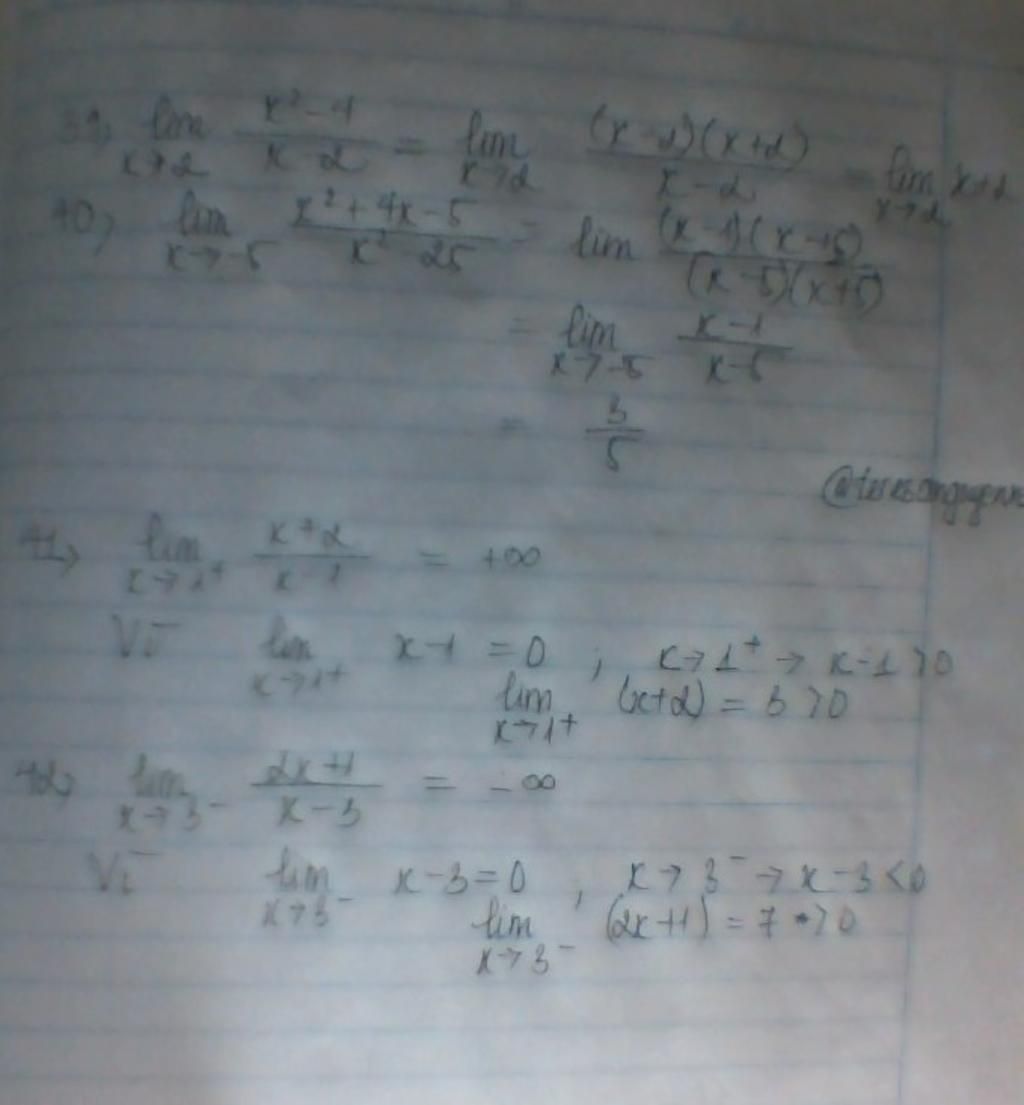 39, lim x→2 x²-4 / x-2 = lim x→2 (x-2)(x+2) / x-2 = lim x→2 x+2
40, lim x→-5 x²+4x-5 / x²-25 = lim (x-1)(x+5) / (x-5)(x+5)
= lim x→-5 x-1 / x-5
= 3 / 5
41, lim x→1⁺ x+2 / x-1 = +∞
Vì lim x→1⁺ x-1 = 0 ; x→1⁺ → x-1 > 0
lim x→1⁺ (x+2) = 3 > 0
42, lim x→3⁻ 2x+1 / x-3 = -∞
Vì lim x→3⁻ x-3 = 0 , x→3⁻ → x-3 < 0
lim x→3⁻ (2x+1) = 7 > 0